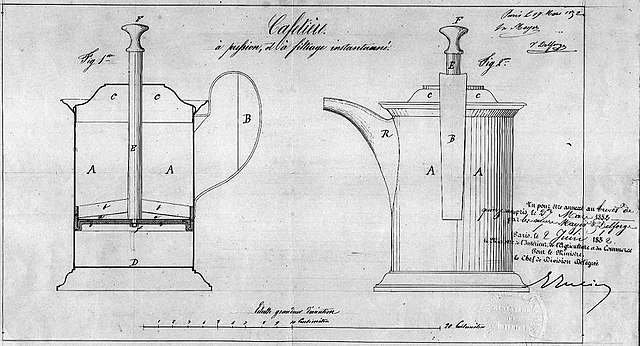 Cafetière.
à pression, et à filtrage instantanné.
Paris le 17 Mars 1852
Mayer
Delforge
Fig 1ère
Fig 2e
F
F
C C
C C
E
E
B
B
R
A A
A A
D
Vu pour être annexé au brevet de
quinze ans pris le Mars 1852
par les sieurs Mayer & Delforge
Paris, le 2 Juin 1852
le Ministre de l'Intérieur, de l'Agriculture et du Commerce
Pour le Ministre,
le Chef de Division Délégué
Echelle grandeur d'exécution
20 Centimètres